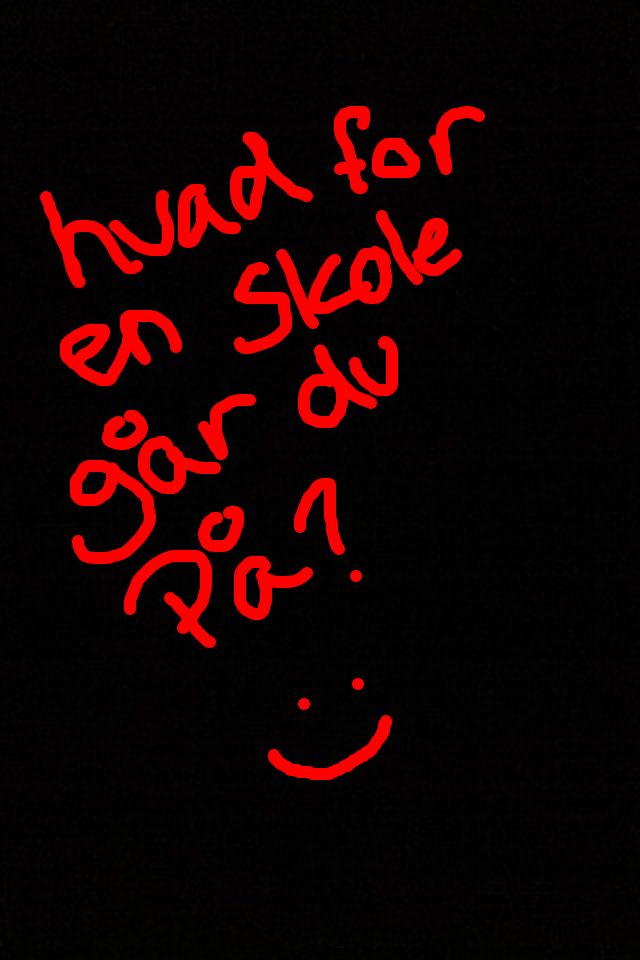 hvad for
en skole
går du
på?